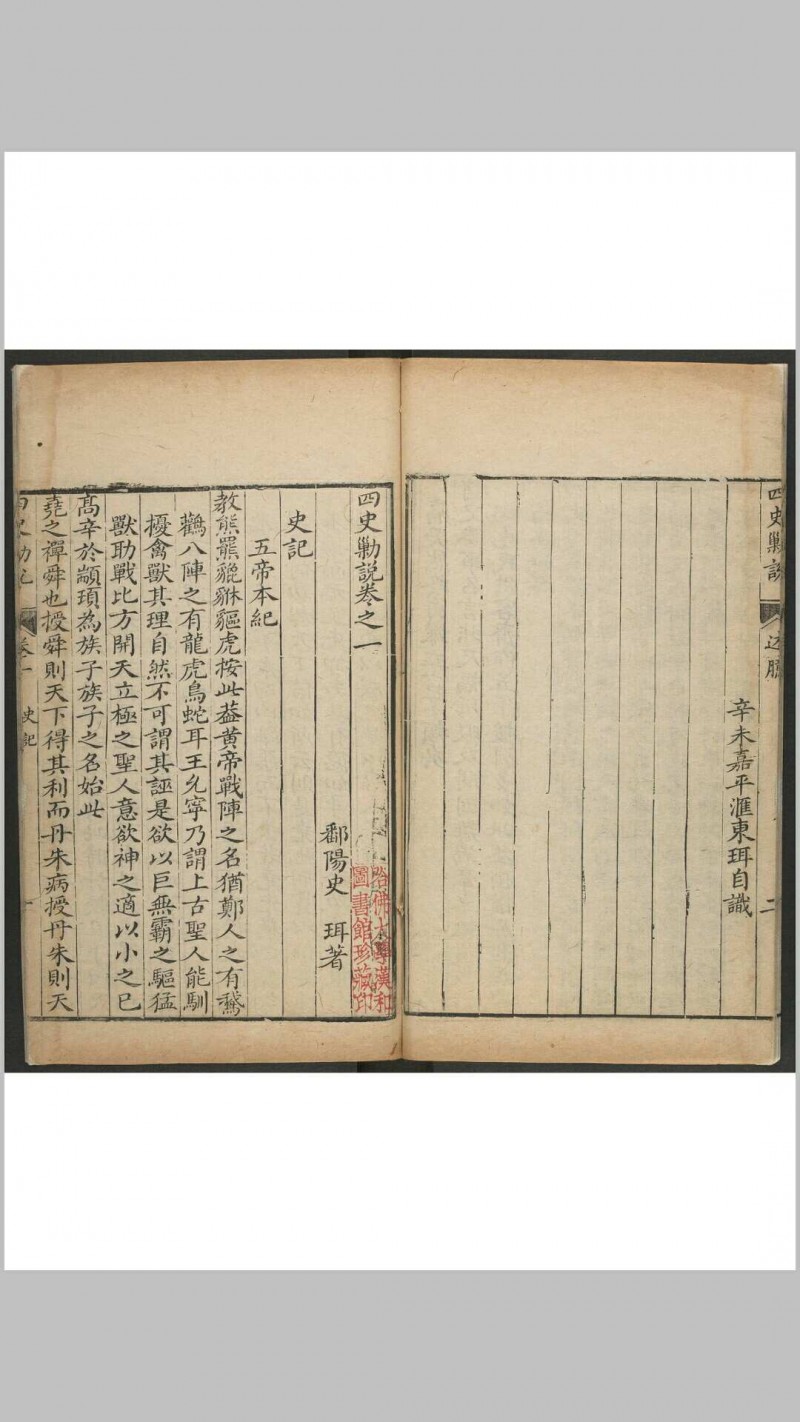 四史勦說
二
辛未嘉平滙東珥自識
四史勦說卷之一
鄱陽史 珥著
哈佛大學漢和
圖書館珍藏印
史記
五帝本紀
教熊羆貔貅貙虎按此葢黄帝戰陣之名猶鄭人之有鵞
鸛八陣之有龍虎鳥蛇耳王允寧乃謂上古聖人能馴
擾禽獸其理自然不可謂其誣是欲以巨無霸之驅猛
獸助戰比方開天立極之聖人意欲神之適以小之已
髙辛於顓頊為族子族子之名始此
堯之禪舜也授舜則天下得其利而丹朱病授丹朱則天
卷一
史記